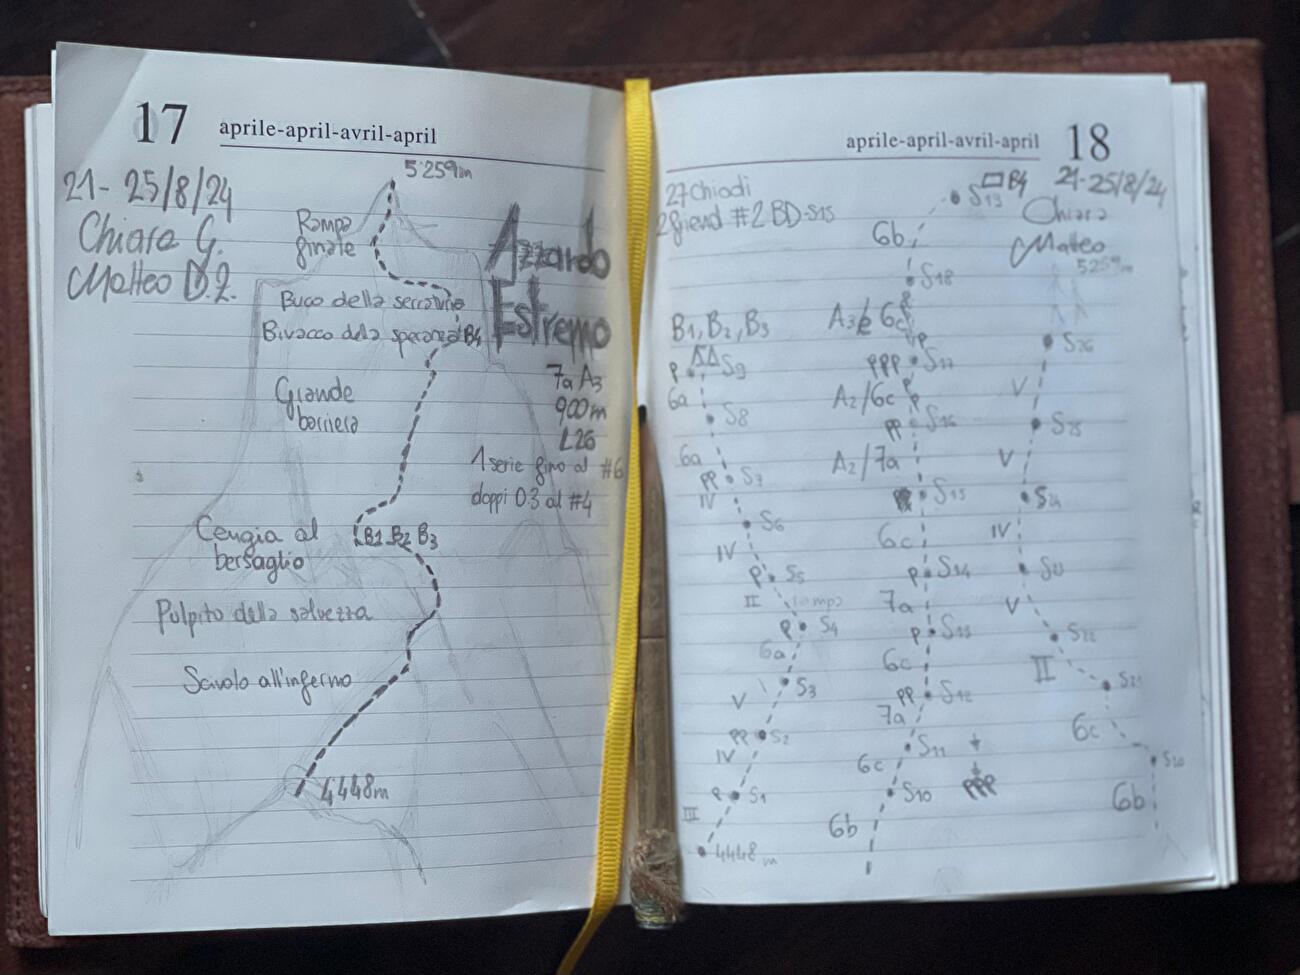 17 aprile-april-avril-april
21- 25/8/24
Chiara G.
Matteo D.Z.
5259m
Rampa
finale
Azzardo
Estremo
Buco della serratura
Bivacco della speranza B4
7a A3
900m
L26
1 serie fino al #6
doppi 0.3 al #4
Grande
barriera
Cengia al
bersaglio
B1 B2 B3
Pulpito della salvezza
Scivolo all'inferno
4448m
aprile-april-avril-april 18
27 Chiodi
2 friend #2 BD-S15
21-25/8/24
Chiara
Matteo
5259m
B1, B2, B3
P S9
6a
S8
6a
PP S7
IV
S6
IV
P S5
II rampa
P S4
6a
S3
V
PP S2
IV
P S1
III
4448m
B4
6b
S18
A3 6c
PPP S17
A2/6c
PP S16
A2/7a
S15
6c
P S14
7a
P S13
6c
PP S12
7a
S11
6c
S10
6b
PPP
S26
V
S25
V
S24
IV
S23
V
S22
II
S21
6c
S20
6b